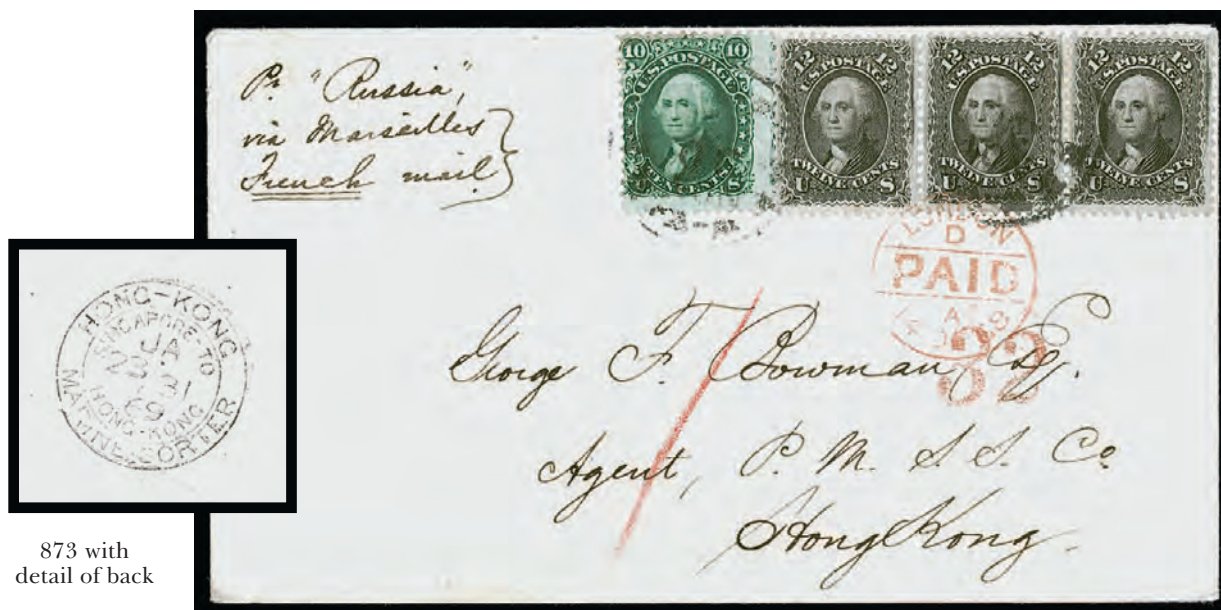 Pr. "Russia",
via Marseilles
French mail
10 10
U.S. POSTAGE
TEN CENTS
U S
12 12
U.S. POSTAGE
TWELVE CENTS
U S
12 12
U.S. POSTAGE
TWELVE CENTS
U S
12 12
U.S. POSTAGE
TWELVE CENTS
U S
LONDON
D
PAID
A
32
George F. Bowman Esq.
Agent, P. M. S. S. Co
Hong Kong.
HONG-KONG
SINGAPORE-TO
JA
69
HONG-KONG
MARINE-SORTER
873 with
detail of back